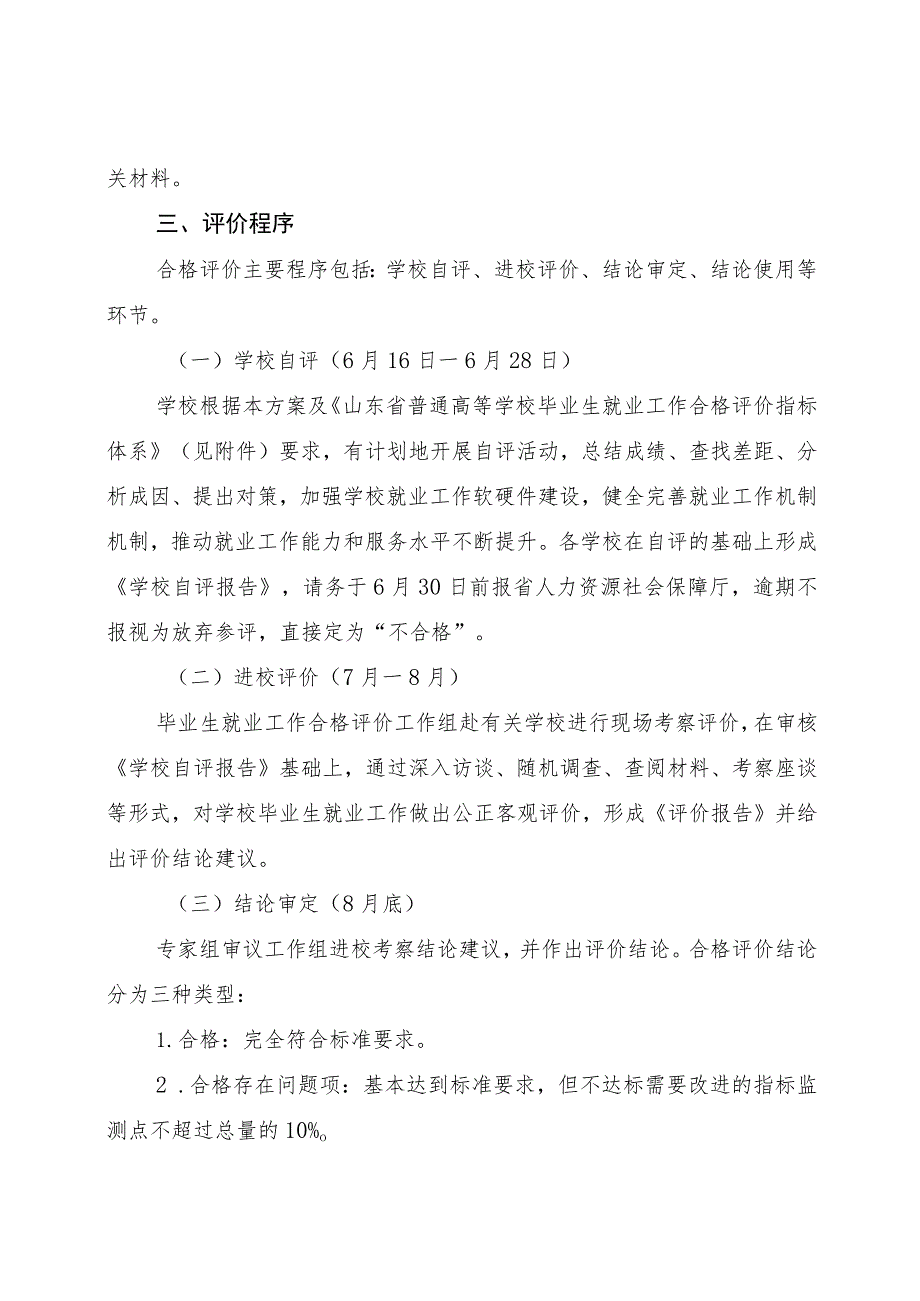 关材料。
三、评价程序
合格评价主要程序包括：学校自评、进校评价、结论审定、结论使用等
环节。
（一）学校自评（6月16日一6月28日）
学校根据本方案及《山东省普通高等学校毕业生就业工作合格评价指标
体系》（见附件）要求，有计划地开展自评活动，总结成绩、查找差距、分
析成因、提出对策，加强学校就业工作软硬件建设，健全完善就业工作机制
机制，推动就业工作能力和服务水平不断提升。各学校在自评的基础上形成
《学校自评报告》，请务于6月30日前报省人力资源社会保障厅，逾期不
报视为放弃参评，直接定为“不合格”。
（二）进校评价（7月一8月）
毕业生就业工作合格评价工作组赴有关学校进行现场考察评价，在审核
《学校自评报告》基础上，通过深入访谈、随机调查、查阅材料、考察座谈
等形式，对学校毕业生就业工作做出公正客观评价，形成《评价报告》并给
出评价结论建议。
（三）结论审定（8月底）
专家组审议工作组进校考察结论建议，并作出评价结论。合格评价结论
分为三种类型：
1.合格：完全符合标准要求。
2 .合格存在问题项：基本达到标准要求，但不达标需要改进的指标监
测点不超过总量的10%。